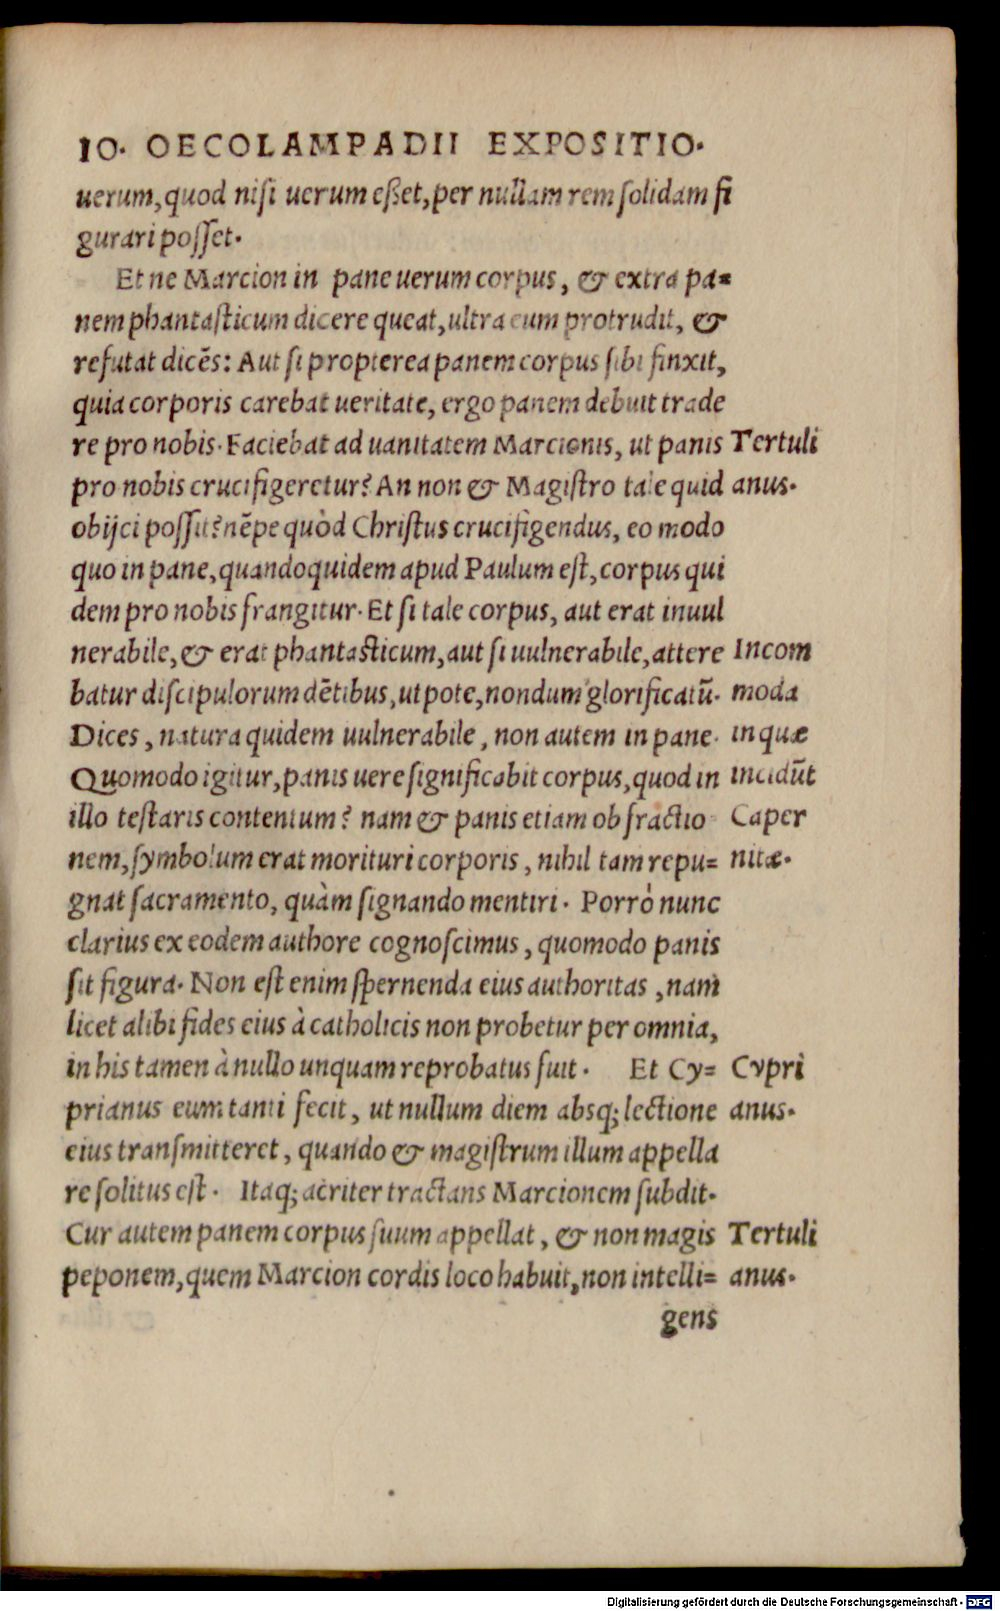 IO. OECOLAMPADII EXPOSITIO.
uerum, quod nisi uerum eßet, per nullam rem solidam fi
gurari posset.
Et ne Marcion in pane uerum corpus, & extra pa=
nem phantasticum dicere queat, ultra eum protrudit, &
refutat dicẽs: Aut si propterea panem corpus sibi finxit,
quia corporis carebat ueritate, ergo panem debuit trade
re pro nobis. Faciebat ad uanitatem Marcionis, ut panis Tertuli
pro nobis crucifigeretur? An non & Magistro tale quid anus.
obijci possit? nẽpe quòd Christus crucifigendus, eo modo
quo in pane, quandoquidem apud Paulum est, corpus qui
dem pro nobis frangitur. Et si tale corpus, aut erat inuul
nerabile, & erat phantasticum, aut si uulnerabile, attere Incom
batur discipulorum dẽtibus, utpote, nondum glorificatũ. moda
Dices, natura quidem uulnerabile, non autem in pane. in quæ
Quomodo igitur, panis uere significabit corpus, quod in incidũt
illo testaris contentum? nam & panis etiam ob fractio Caper
nem, symbolum erat morituri corporis, nihil tam repu= nitæ.
gnat sacramento, quàm signando mentiri. Porrò nunc
clarius ex eodem authore cognoscimus, quomodo panis
sit figura. Non est enim spernenda eius authoritas, nam
licet alibi fides eius à catholicis non probetur per omnia,
in his tamen à nullo unquam reprobatus fuit. Et Cy= Cypri
prianus eum tanti fecit, ut nullum diem absq; lectione anus.
eius transmitteret, quando & magistrum illum appella
re solitus est. Itaq; acriter tractans Marcionem subdit.
Cur autem panem corpus suum appellat, & non magis Tertuli
peponem, quem Marcion cordis loco habuit, non intelli= anus.
gens
Digitalisierung gefördert durch die Deutsche Forschungsgemeinschaft - DFG